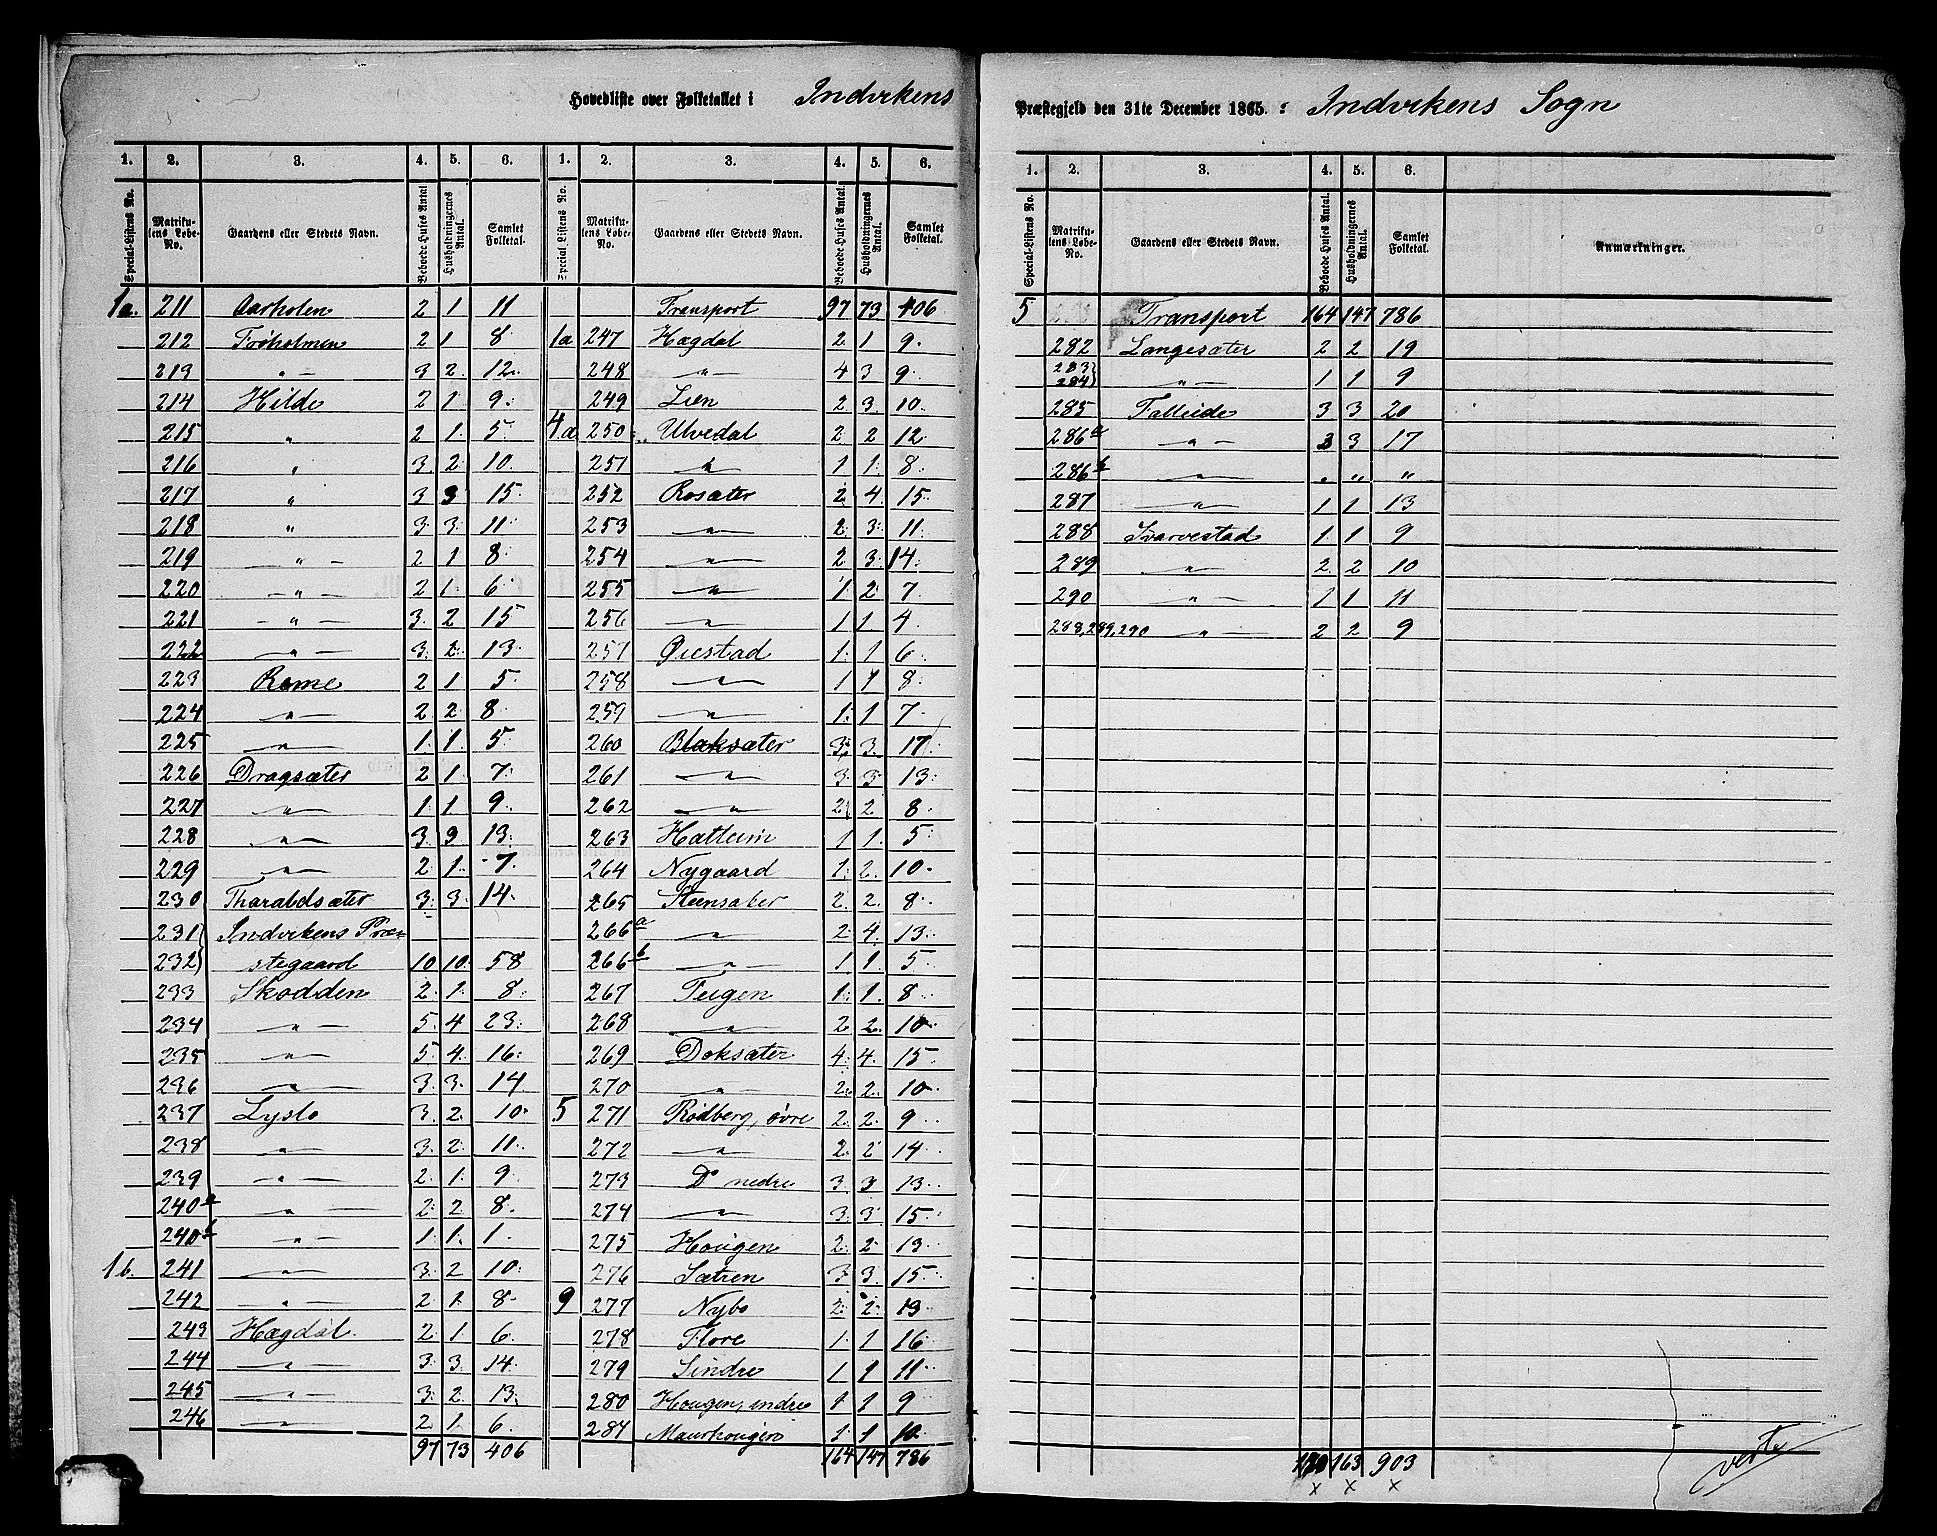 Hovedliste over Folketallet i Indvikens
1. 2. 3. 4. 5. 6.
Special-Listens No. Matrikulens Løbe-No. Gaardens eller Stedets Navn. Beboede Huses Antal Husholdningernes Antal. Samlet Folketal.
1a. 211 Aarholen 2 1 11
212 Frøholmen 2 1 8
213 " 3 2 12
214 Hilde 2 1 9
215 " 2 1 5
216 " 3 2 10
217 " 3 3 15
218 " 3 3 11
219 " 2 1 8
220 " 2 1 6
221 " 3 2 15
222 " 3 2 13
223 Reme 2 1 5
224 " 2 2 8
225 " 1 1 5
226 Dragsæter 2 1 7
227 " 1 1 9
228 " 3 3 13
229 " 2 1 7
230 Tharaldsæter 3 3 14
231 Indvikens Præ-
232 stegaard 10 10 58
233 Skodden 2 1 8
234 " 5 4 23
235 " 5 4 16
236 " 3 3 14
237 Lyslo 3 2 10
238 " 3 2 11
239 " 2 1 9
240a " 2 2 8
240b " 1 1 1
1b. 241 " 3 2 10
242 " 2 1 8
243 Hægdal 2 1 6
244 " 3 3 14
245 " 3 2 13
246 " 2 1 6
97 73 406
1. 2. 3. 4. 5. 6.
Special-Listens No. Matrikulens Løbe-No. Gaardens eller Stedets Navn. Beboede Huses Antal. Husholdningernes Antal. Samlet Folketal.
Transport 97 73 406
1a 247 Hægdal 2 1 9
248 " 4 3 9
249 Lien 2 3 10
4a 250 Ulvedal 2 2 12
251 " 1 1 8
252 Rosæter 2 4 15
253 " 2 3 11
254 " 2 3 14
255 " 1 2 7
256 " 1 1 4
257 Øiestad 1 1 6
258 " 1 1 8
259 " 1 1 7
260 Blaksæter 3 3 17
261 " 3 3 13
262 " 2 2 8
263 Hatleim 1 1 5
264 Nygaard 1 2 10
265 Steensæter 2 2 8
266a " 2 4 13
266b " 1 1 5
267 Teigen 1 1 8
268 " 2 2 10
269 Doksæter 4 4 15
270 " 2 2 10
5 271 Rødberg, øvre 2 2 9
272 " 2 2 14
273 Do nedre 3 3 13
274 " 3 3 15
275 Hougen 2 2 13
276 Sætren 3 3 15
9 277 Nybø 2 2 13
278 Flore 1 1 16
279 Sindre 1 1 11
280 Hougen, indre 1 1 9
281 Maurhougen 1 1 10
164 147 786
Præstegjeld den 31te December 1865: Indvikens Sogn
1. 2. 3. 4. 5. 6.
Special-Listens No. Matrikulens Løbe-No. Gaardens eller Stedets Navn. Beboede Huses Antal. Husholdningernes Antal. Samlet Folketal. Anmærkninger.
5 Transport 164 147 786
282 Langesæter 2 2 19
283
284 " 1 1 9
285 Talleide 3 3 20
286a " 3 3 17
286b " " " "
287 " 1 1 13
288 Svarvestad 1 1 9
289 " 2 2 10
290 " 1 1 11
288, 289, 290 " 2 2 9
163 903
x x x
verte